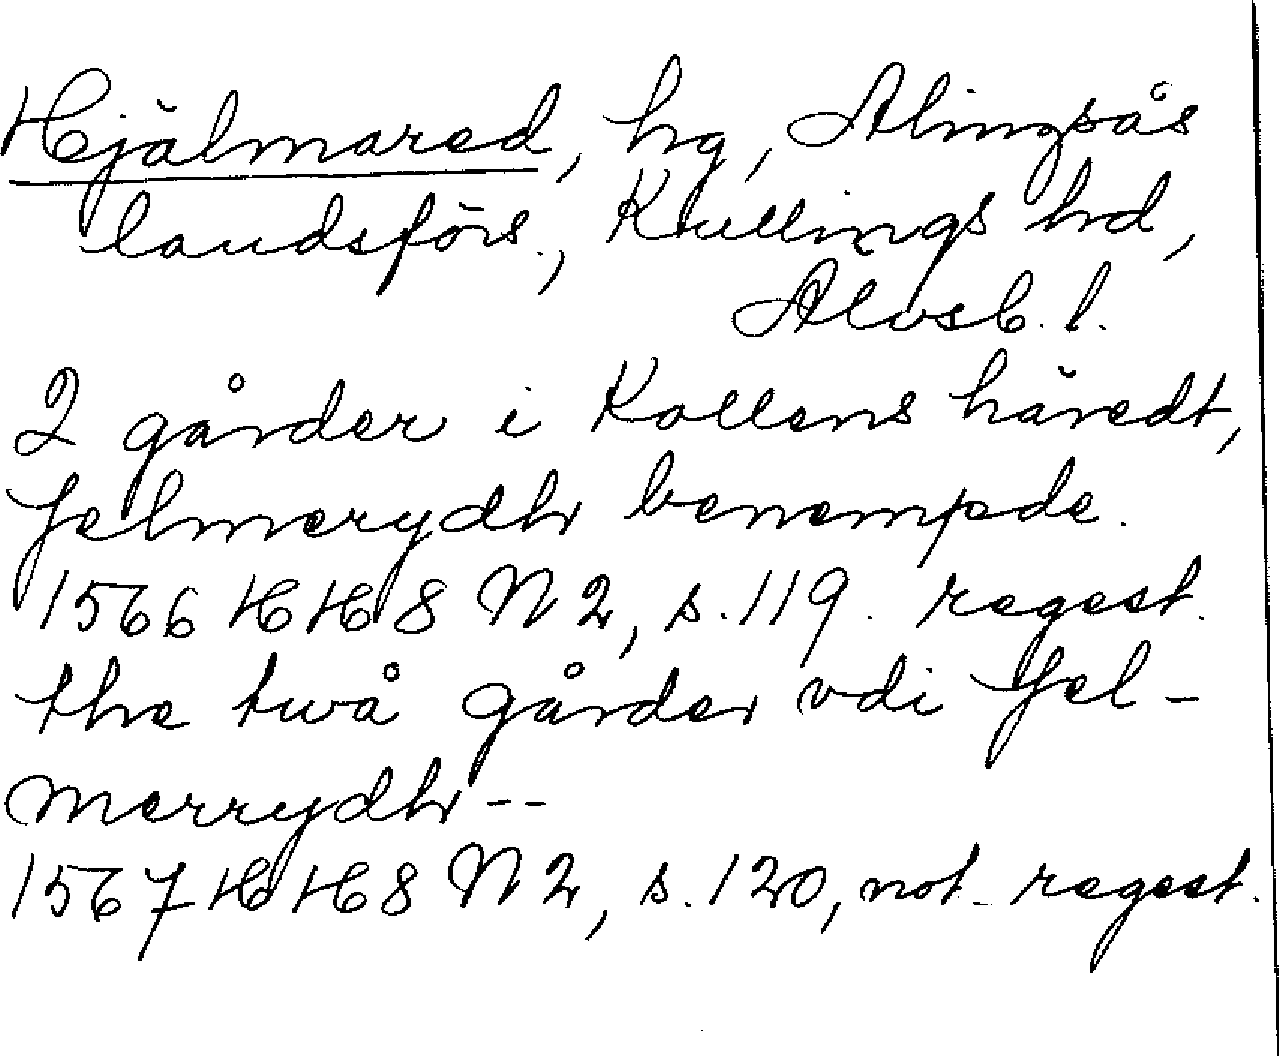 Hjälmared, hg, Alingsås
landsförs., Kullings hd,
Älvsb. l.
2 gårder i Kollens häredt,
Jelmerydh benempde.
1566 HH 8 N 2, s. 119. regest.
the twå gårder vdi Jel-
merrydh --
1567 HH 8 N 2, s. 120, not. regest.